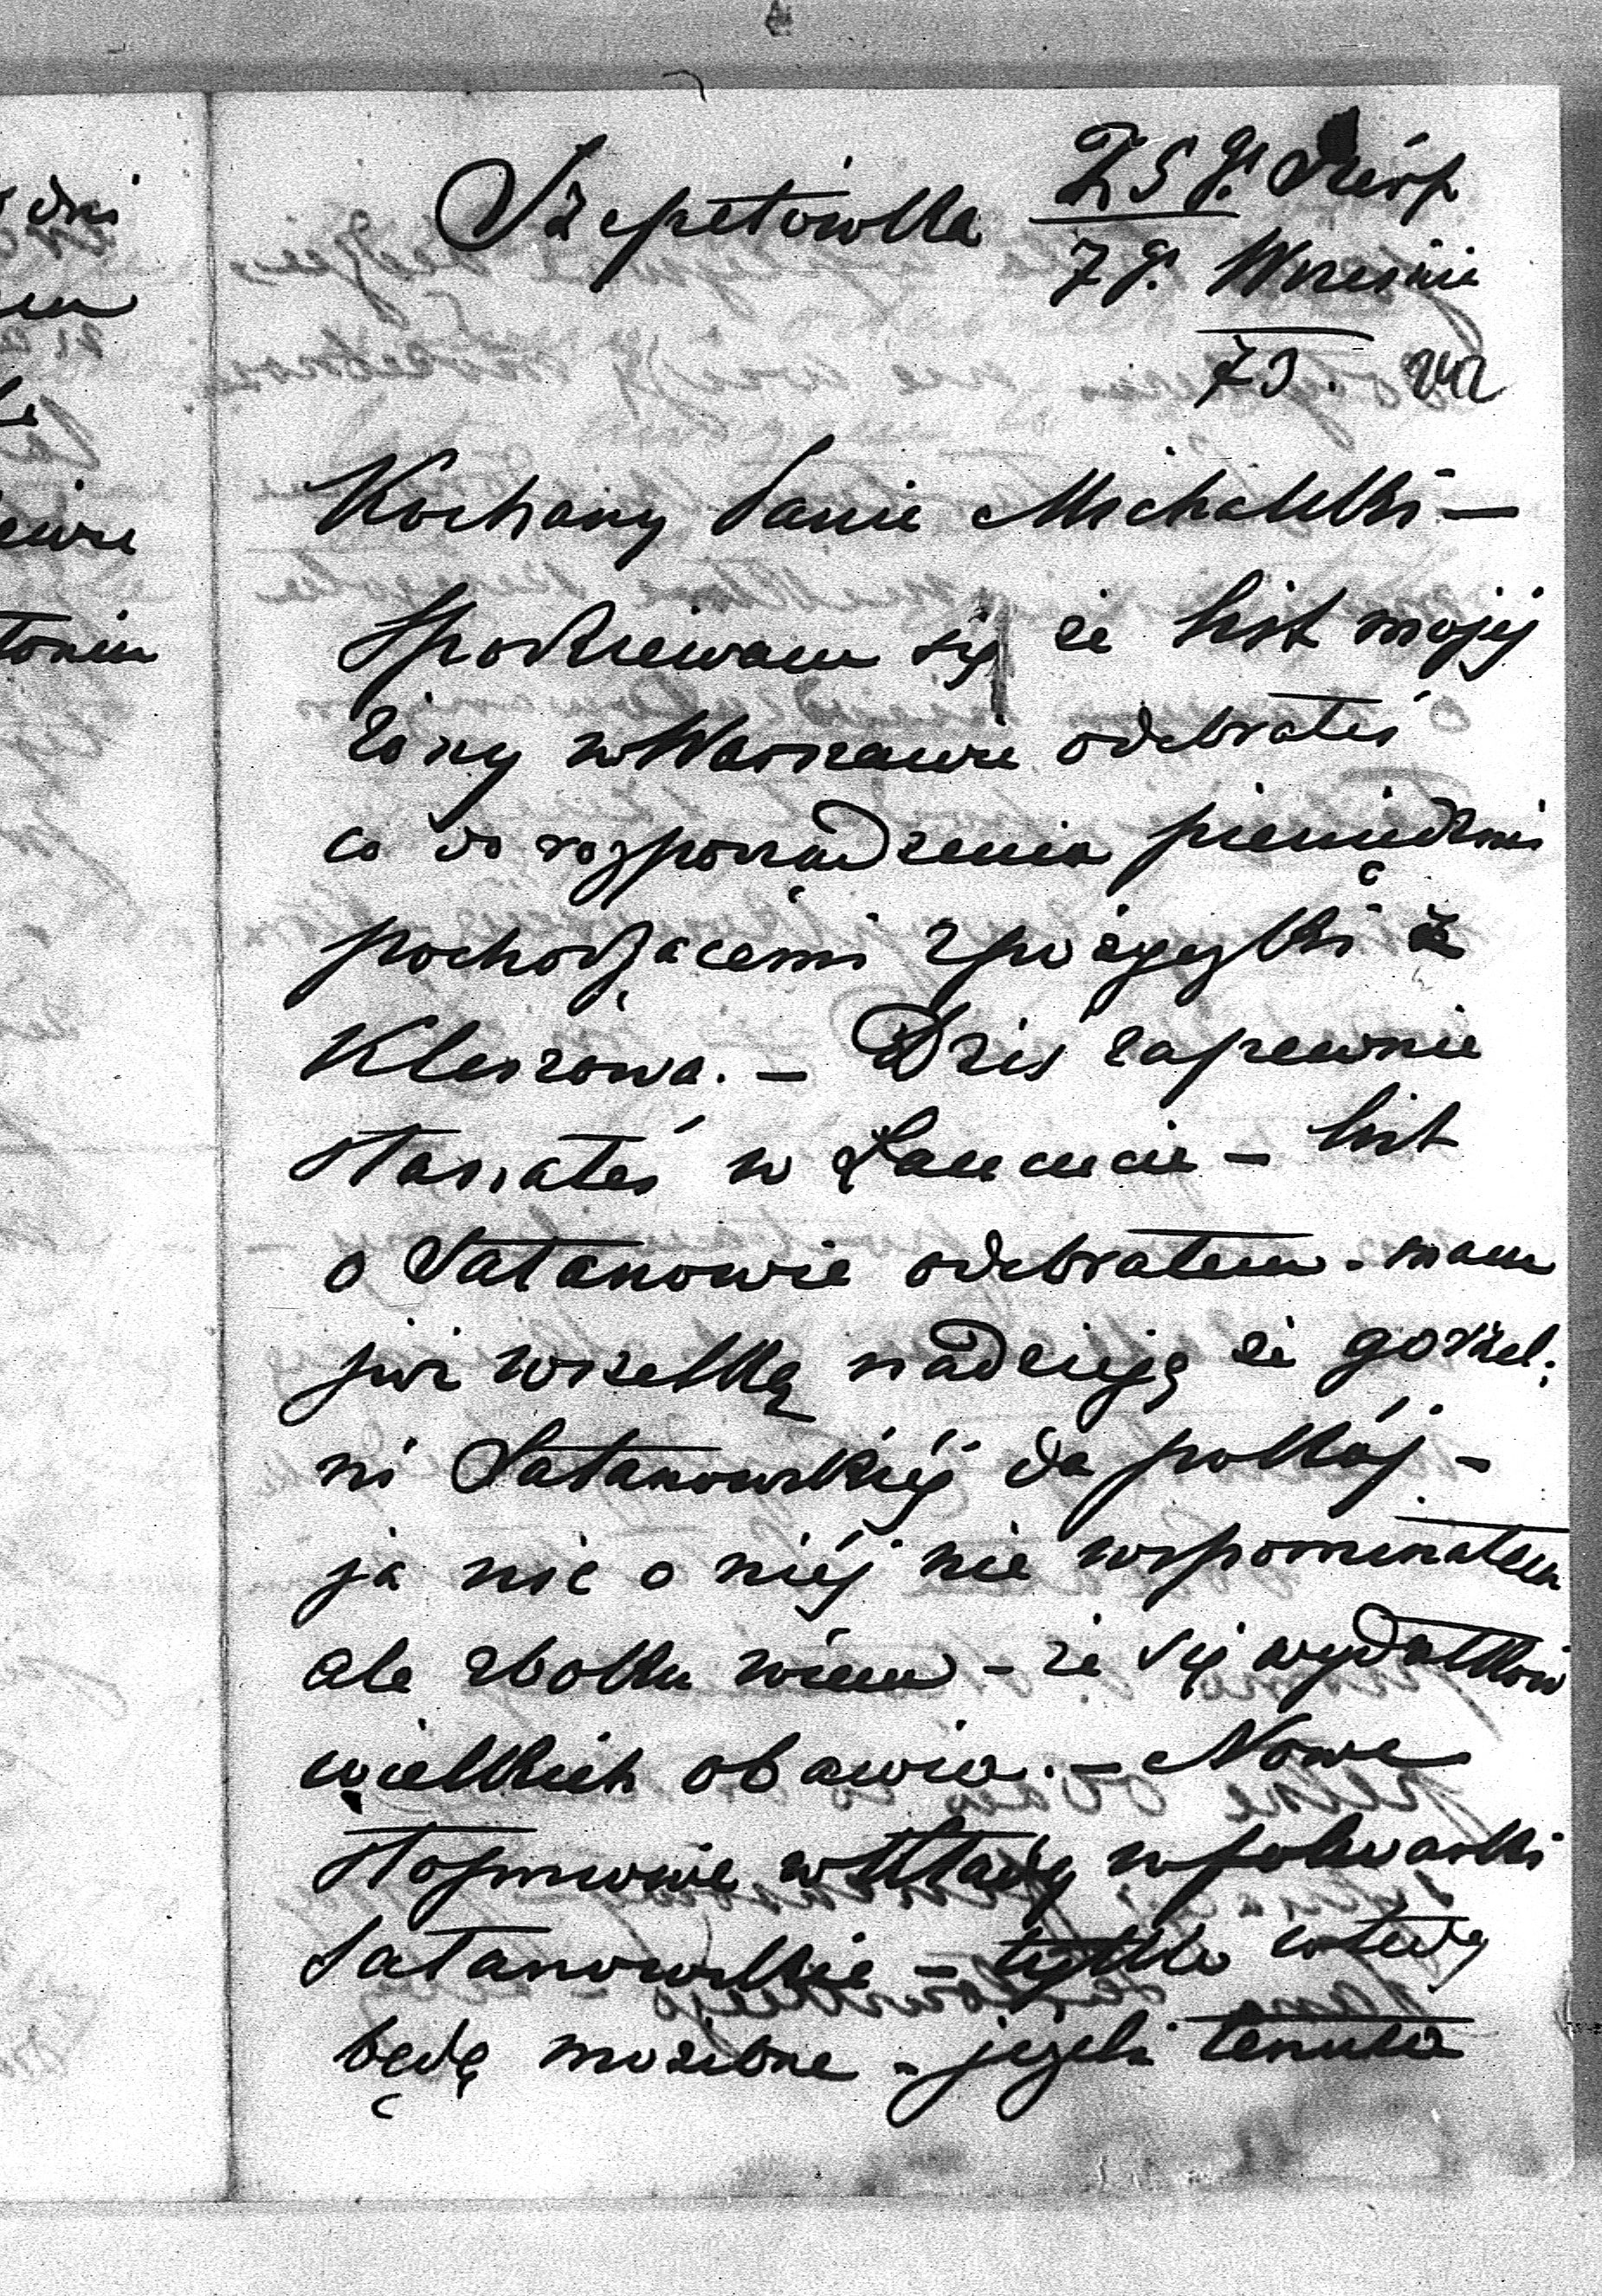 Szepetówka 25 g. Sierp
7 g. Wrześnie
73.
Kochany Panie Michalski —
Spodziewam się że list mojéj
żony w Warszawie odebrałeś
co do rozporządzenia pieniędzmi
pochodzącemi z pożyczki z
Kleszowa. — Dziś zapewnie
stanąłeś w Łańcucie — list
o Satanowie odebrałem. mam
już wszelką nadzieję że gorzel:
ni Satanowskiéj da pokój —
ja nic o niéj nie wspominałem
ale zboku wiem — że się wydatków
wielkich obawia. — Nowe
stopniowe wkłady w folwarki
Satanowskie — tylko wtedy
będę możebne — jeżeli tenuta
dni
tonim